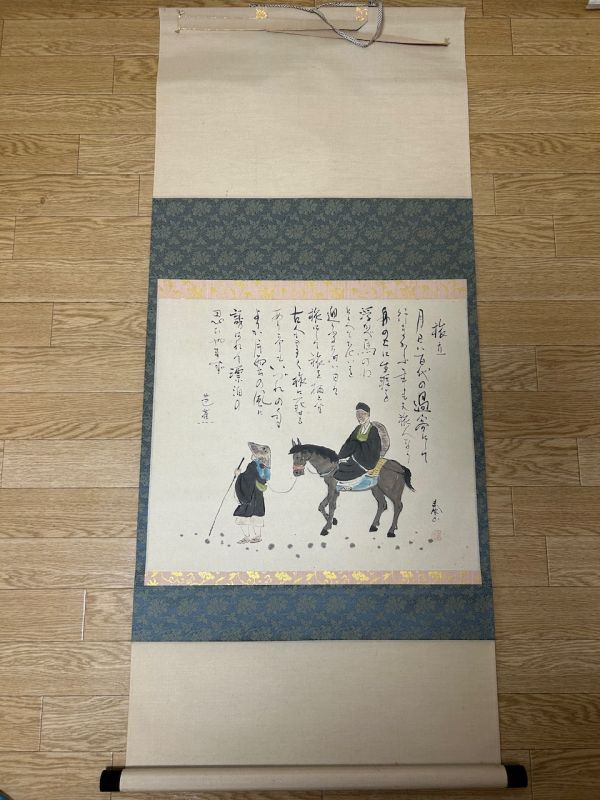 旅立
月日は百代の過客にして
行かふ年も又旅人なり
舟の上に生涯を
浮へ馬の口
とらへて老を
迎ふるものは日々
旅にして旅を栖とす
古人も多く旅に死せる
あり予もいつれの年
よりか片雲の風に
誘はれて漂泊の
思ひやます
芭蕉